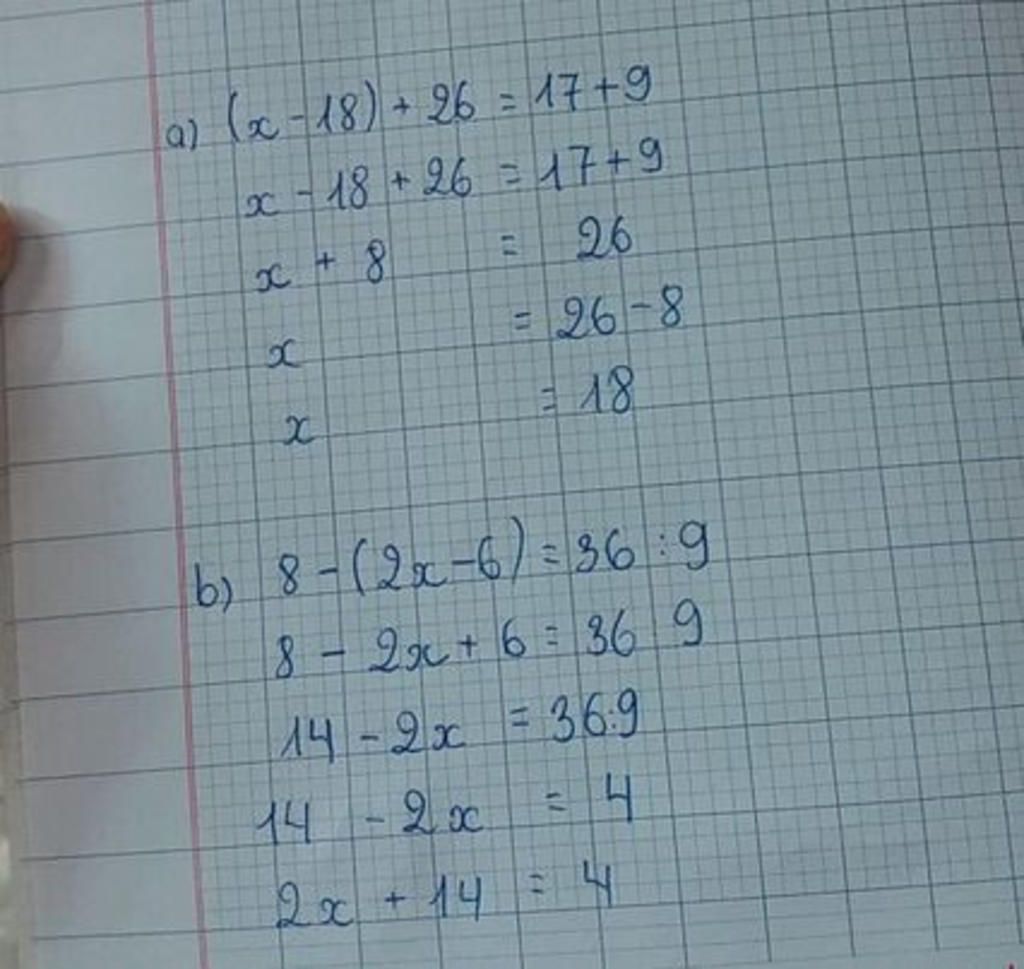 a) (x - 18) + 26 = 17 + 9
x - 18 + 26 = 17 + 9
x + 8 = 26
x = 26 - 8
x = 18
b) 8 - (2x - 6) = 36 : 9
8 - 2x + 6 = 36 9
14 - 2x = 36:9
14 - 2x = 4
2x + 14 = 4